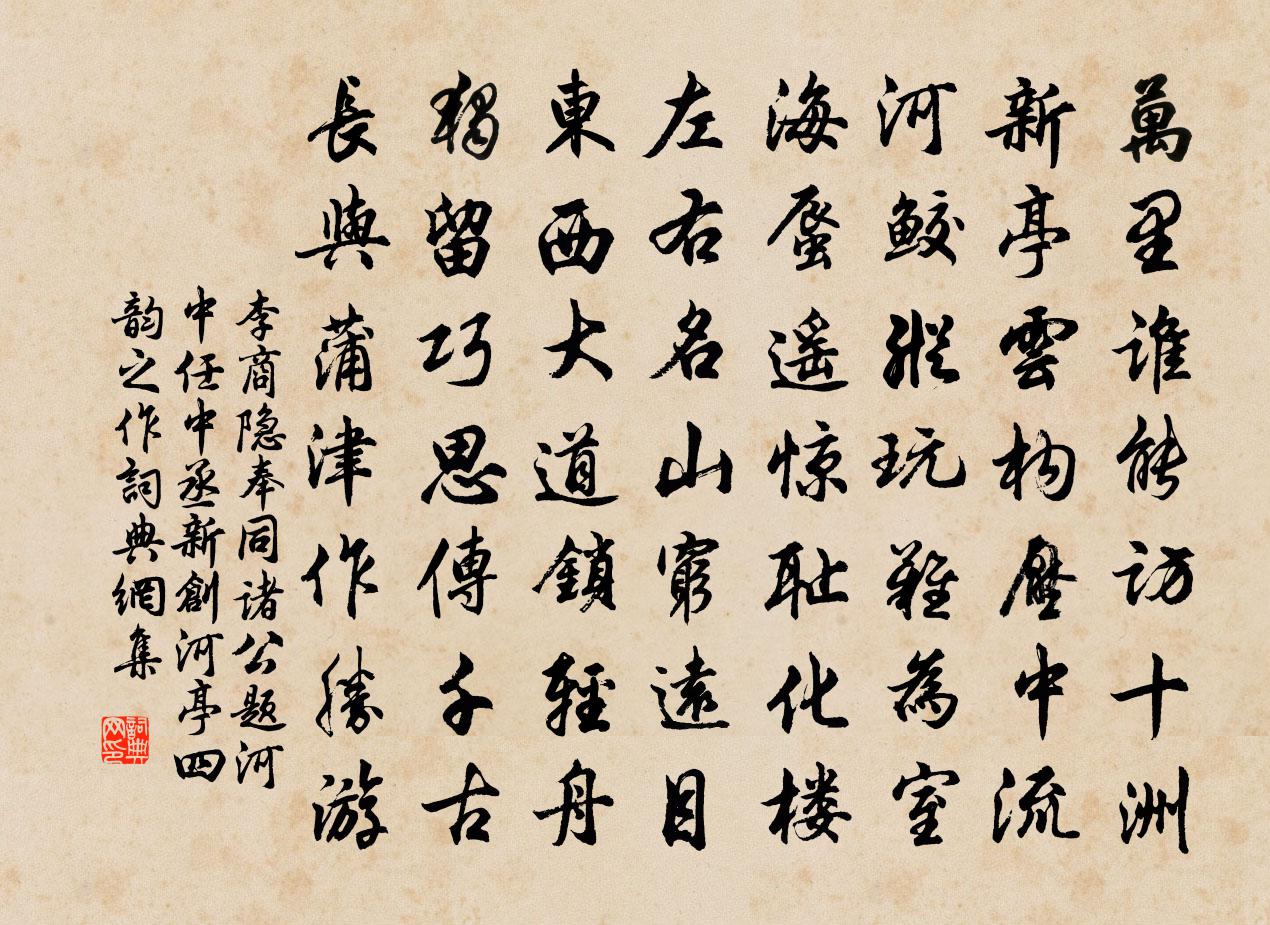 萬里誰能訪十洲
新亭雲构壓中流
河鮫縱玩難為室
海蜃遥惊耻化楼
左右名山窮遠目
東西大道鎖輕舟
獨留巧思傳千古
長與蒲津作勝游
李商隐奉同諸公題河
中任中丞新創河亭四
韵之作詞典網集
詞典网印